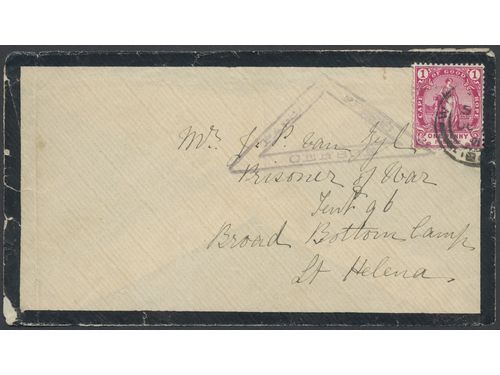 CAPE OF GOOD HOPE
1 1
ONE PENNY
Mr J. P. van Zyl
Prisoner of War
Tent 96
Broad Bottom Camp
St Helena.